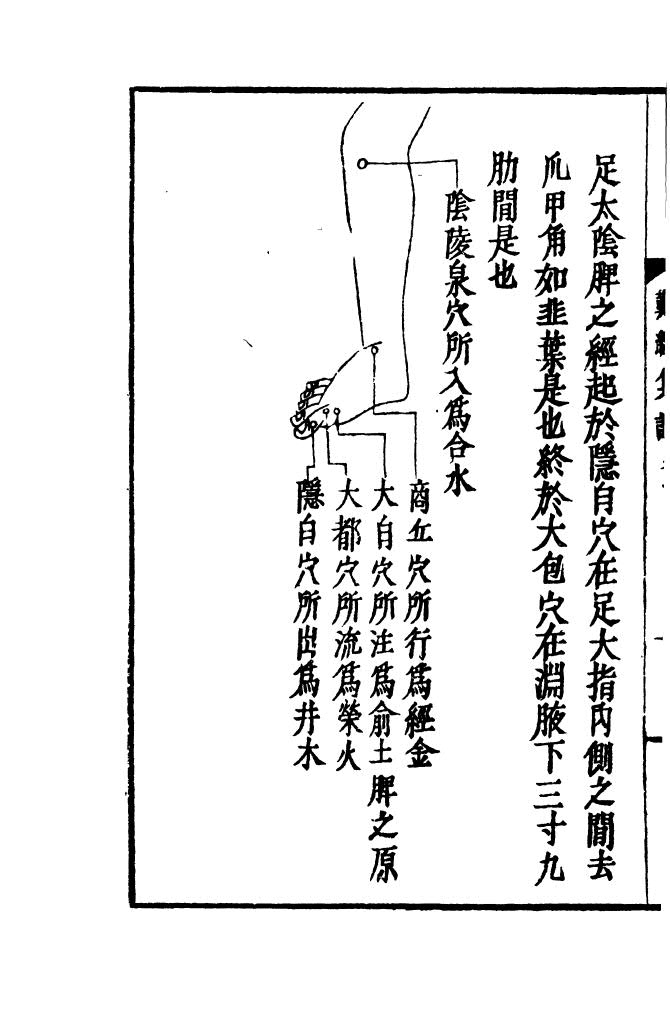 足太陰脾之經起於隱白穴在足大指內側之間去
爪甲角如韭葉是也終於大包穴在淵腋下三寸九
肋間是也
陰陵泉穴所入爲合水
商丘穴所行爲經金
大白穴所注爲俞土脾之原
大都穴所流爲榮火
隱白穴所出爲井木